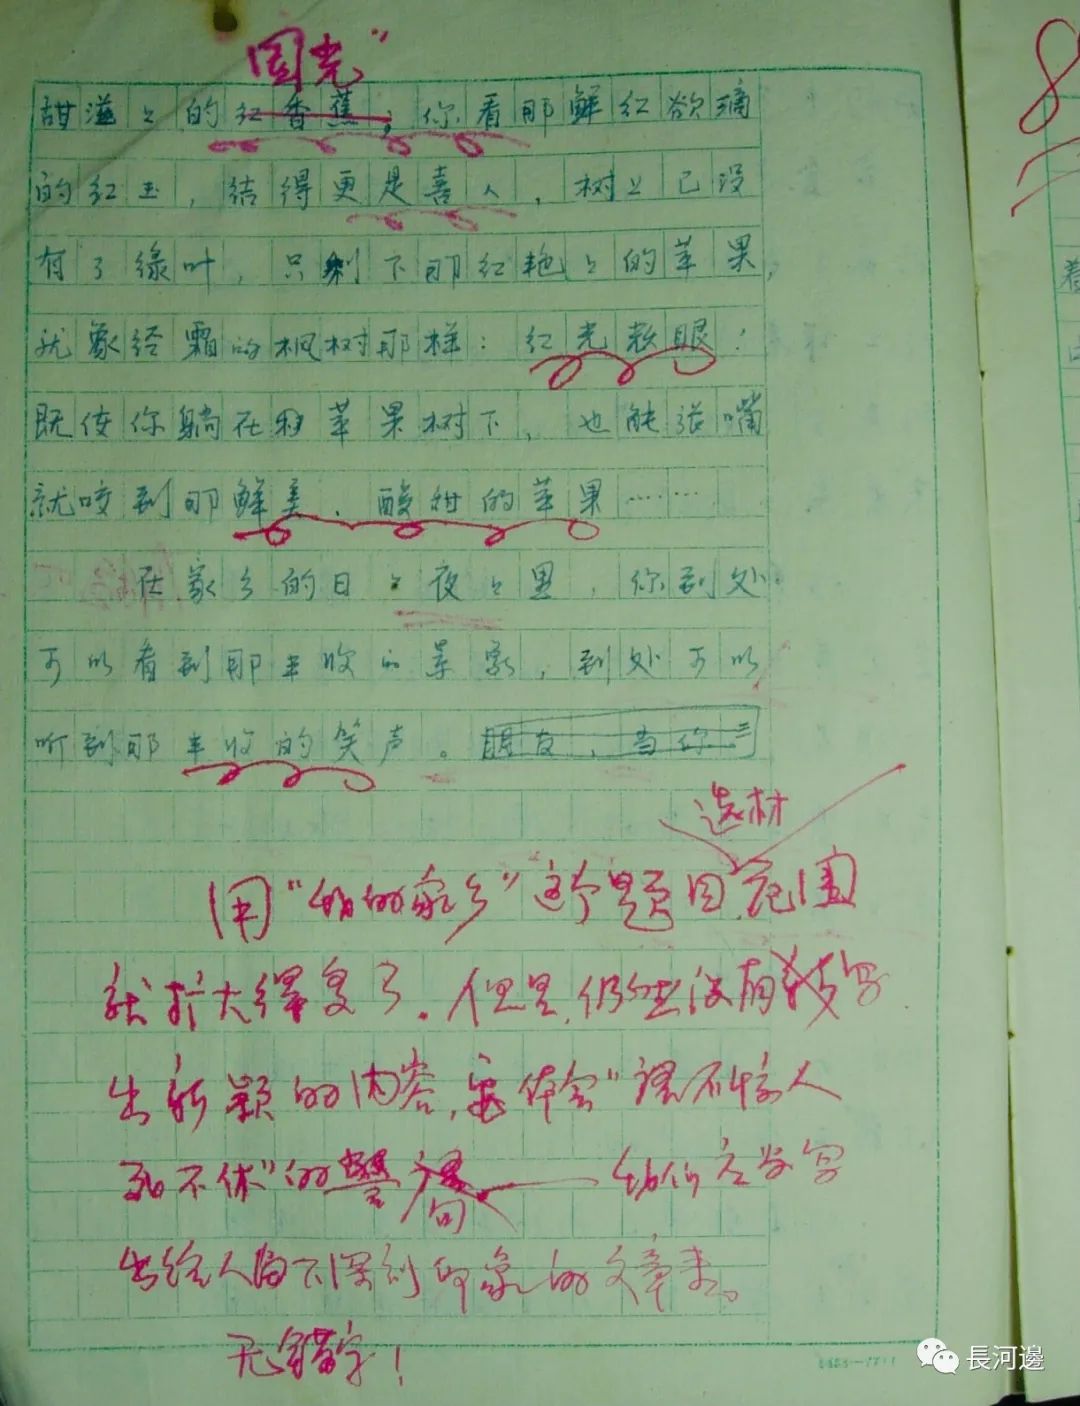 国光"
甜滋〻的红香蕉；你看那鲜红欲滴
的红玉，结得更是喜人，树上已没
有了绿叶，只剩下那红艳〻的苹果，
就象经霜的枫树那样：红光耀眼；
既使你躺在秋苹果树下，也能张嘴
就咬到那鲜美、酸甜的苹果……
在家乡的日〻夜〻里，你到处
可以看到那丰收的景象，到处可以
听到那丰收的笑声。朋友，当你
选材
用"我的家乡"这个题目范围
就扩大得多了。但是，仍然没有写
出新颖的内容，要体会"语不惊人
死不休"的警句——我们应当写
出给人留下深刻印象的文章来。
无错字！
8
着
長河邊